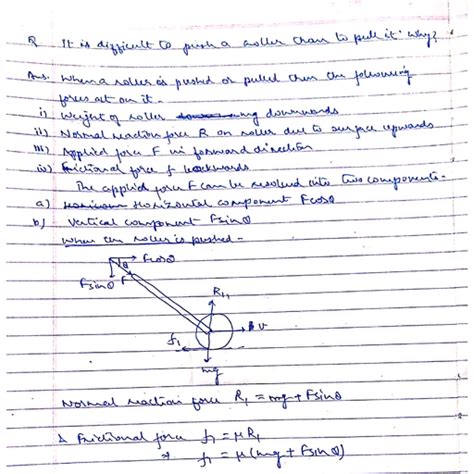 Q It is difficult to push a roller than to pull it. Why?
Ans. When a roller is pushed or pulled then the following
forces act on it.
i) Weight of roller mg downwards
ii) Normal reaction force R on roller due to surface upwards
iii) Applied force F in forward direction
iv) Frictional force f backwards
The applied force F can be resolved into two components.
a) Horizontal component Fcosθ
b) Vertical component Fsinθ
When the roller is pushed -
Fcosθ
θ
Fsinθ F
R1
f1 v
mg
Normal reaction force R1 = mg + Fsinθ
& Frictional force f1 = μR1
⇒ f1 = μ(mg + Fsinθ)